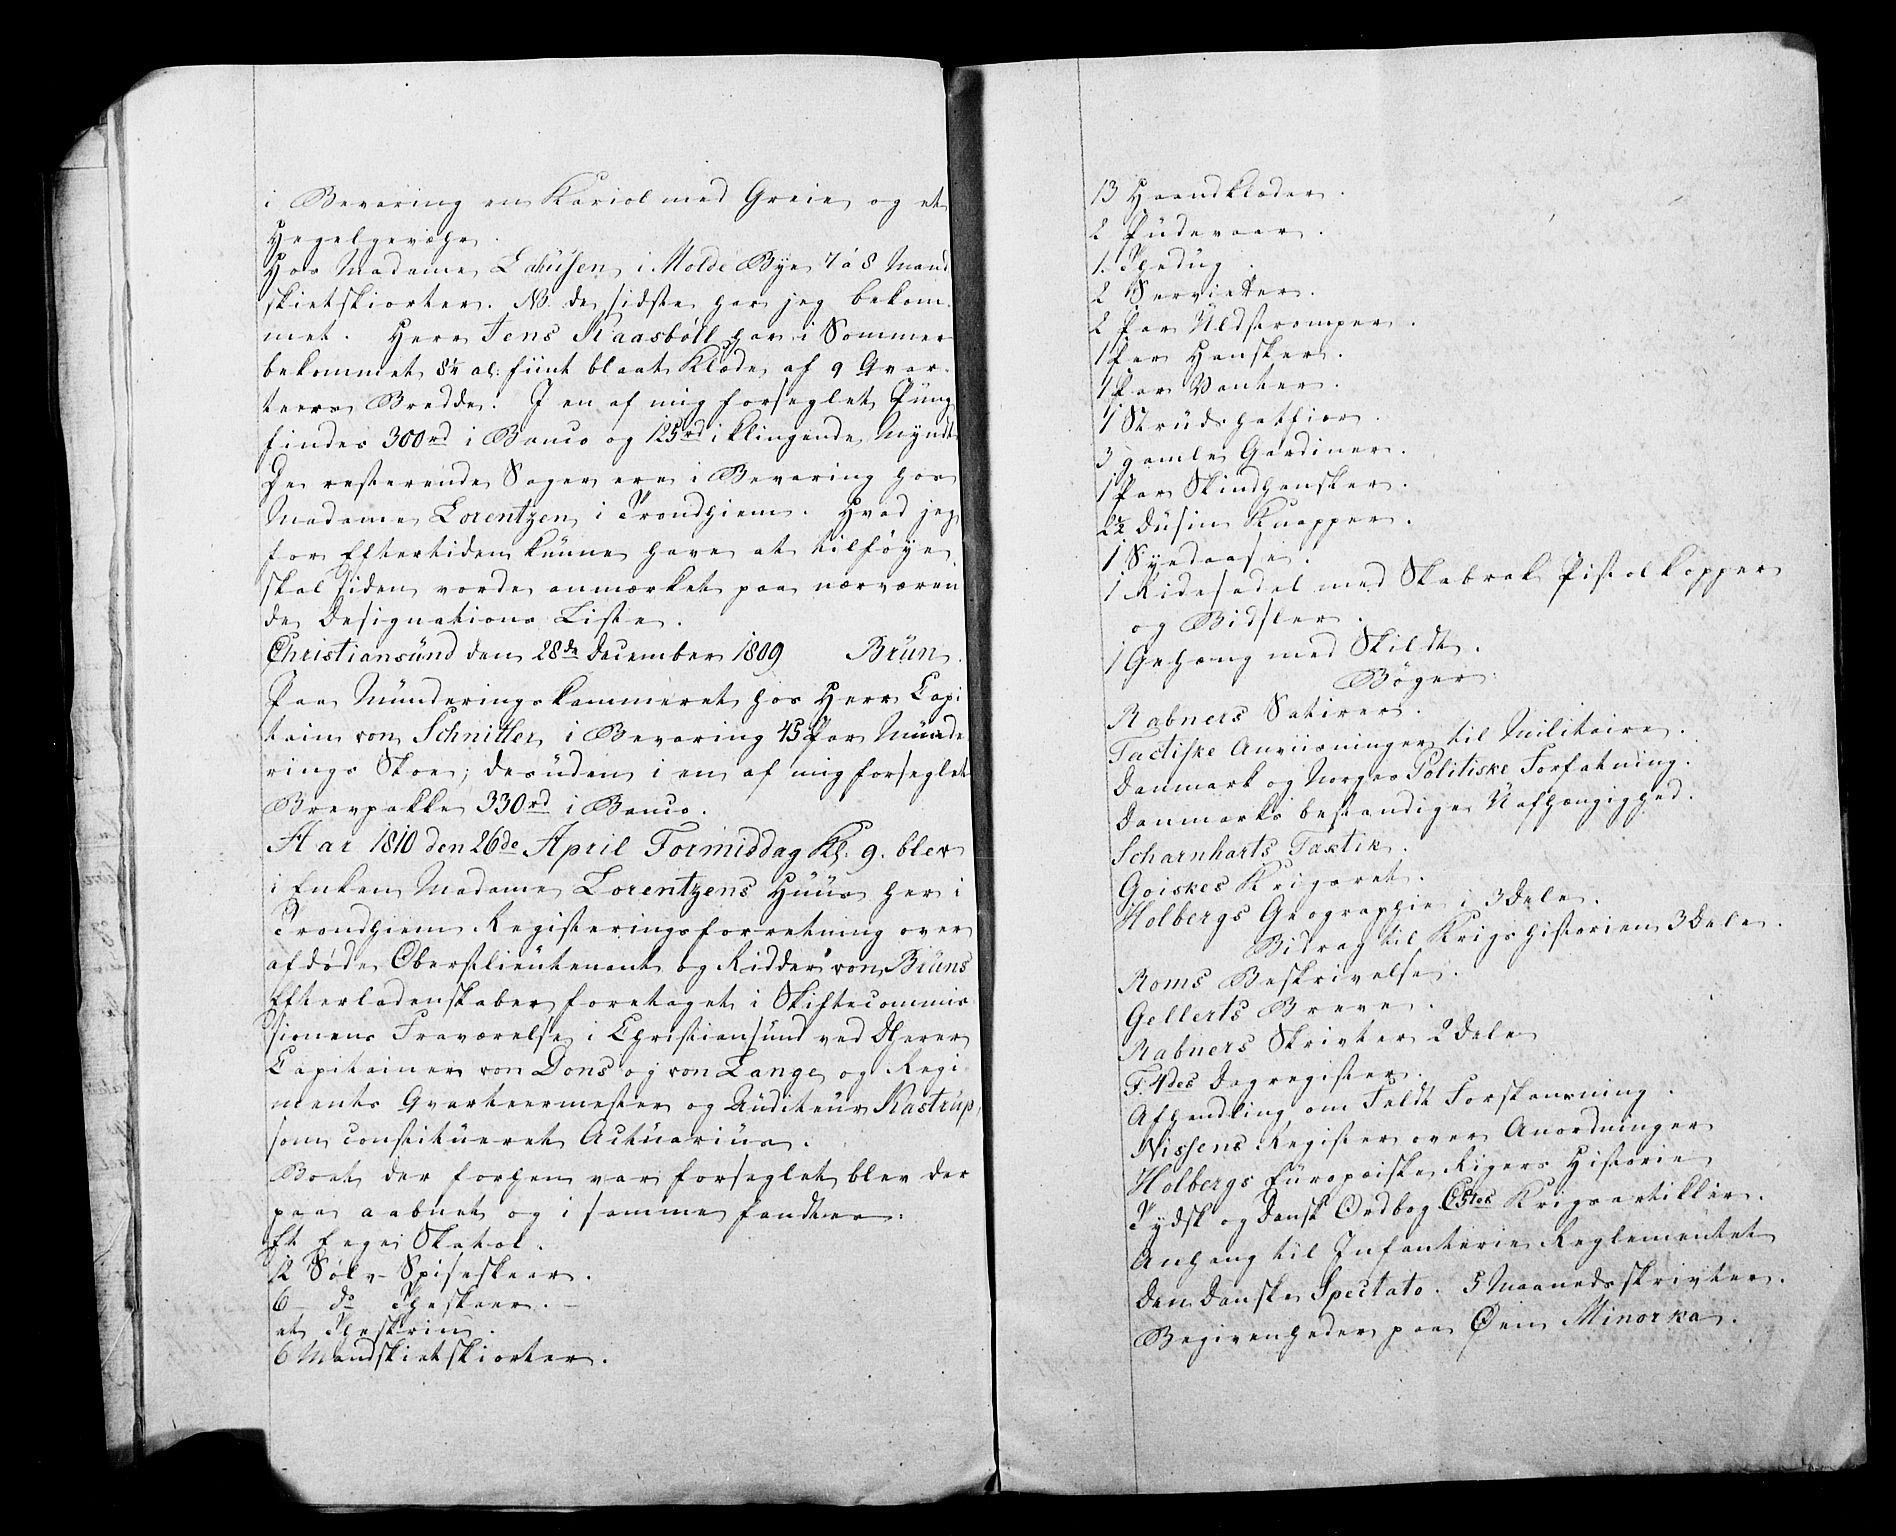 i Bevaring en Kariol med Greie og et
Hegelgevehr.
Hos Madame Lahusen i Molde Bye 7 à 8 Mand
skietskiorter. NB de sidste har jeg bekom-
met. Herr Jens Kaasböll har i Sommer
bekommet 8¼ al: fiint blaat Klæde af 9 Qvar-
teers Bredde. I en af mig forseglet Püng
findes 300rd i Banco og 125rd i klingende Myndt
De resterende Sager ere i Bevaring hos
Madame Lorentzen i Trondhiem. Hvad jeg
for Eftertiden künne have at tilföye
skal siden vorde anmærket paa nærværen
de Designations Liste.
Christiansünd den 28de December 1809 Brün.
Paa Münderingskammeret hos Herr Capi
tain von Schnitler i Bevaring 45 Par Münde
rings Skoe; desüden i en af mig forseglet
Brevpakke 330rd i Banco.
Aar 1810 den 26de April Formiddag Kl. 9. blev
i Enken Madame Lorentzens Hüüs her i
Trondhiem Registeringsforretning over
afdöde Oberstlieutenant og Ridder von Brüns
Efterladenskaber foretaget i Skiftecommis
sionens Fraværelse i Christiansünd ved DHerer
Capitainer von Dons og von Lange og Regi
ments Qvarteermester og Auditeur Kastrup,
som constitueret Actuarius.
Boet der forhen var forseglet blev der
paa aabnet og i samme fandtes:
Et Eege Skatol.
12 Sölv Spiseskeer.
6 – do Theskeer. –
et Theskrin.
6 Mandskietskiorter.
13 Haandklæder.
2 Püdevaar.
1. Thedüg.
2 Servietter.
2 Par Uldströmper.
1 Par Hansker.
1 Par Vanter.
1 Strüdshatfior.
3 gamle Gardiner.
1 Par Skindhansker.
2½ Düsin Knapper.
1 Syedaase.
1 Ridesadel med Skabrak Pistolkapper
og Bidsler.
1 Gehæng med Skildt.
Böger:
Rabners Satirer.
Tactiske Anviisninger til Militaire.
Danmark og Norges Politiske Forfatning.
Danmarks bestandige Uafhængighed.
Scharnharts Taktik.
Goiskes Krigsret.
Holbergs Geographie i 3 Dele.
Bidrag til Krigshistorien 3 Dele.
Roms Beskrivelse.
Gellerts Breve.
Rabners Skrivter 2 Dele
F. 4des Dagregister.
Afhandling om Feldt Forskansning.
Nissens Register over Anordninger
Holbergs Europæiske Rigers Historie
Tydsk og Dansk Ordbog C 5tes Krigsartikler.
Anhang til Infanterie Reglementet
Den Danske Spectato. 5 Maanedsskrivter.
Begivenheder paa Öen Minorka.